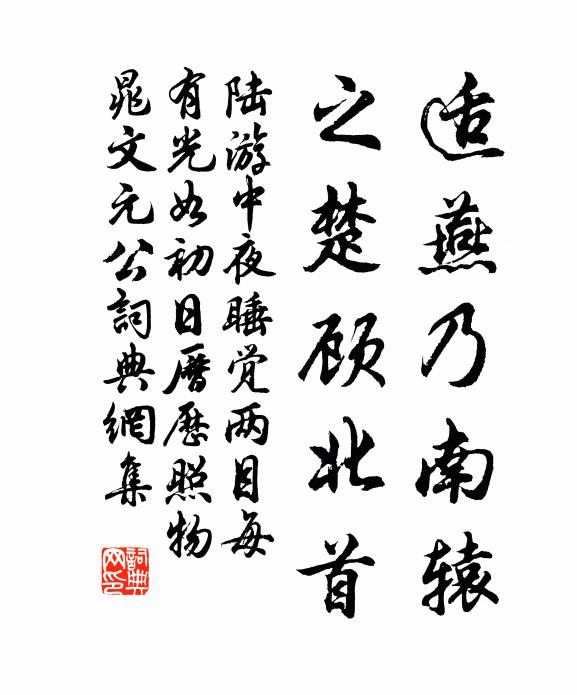 适燕乃南辕
之楚顾北首
陆游中夜睡觉两目每
有光如初日曆歷照物
晁文元公詞典網集
詞典网印